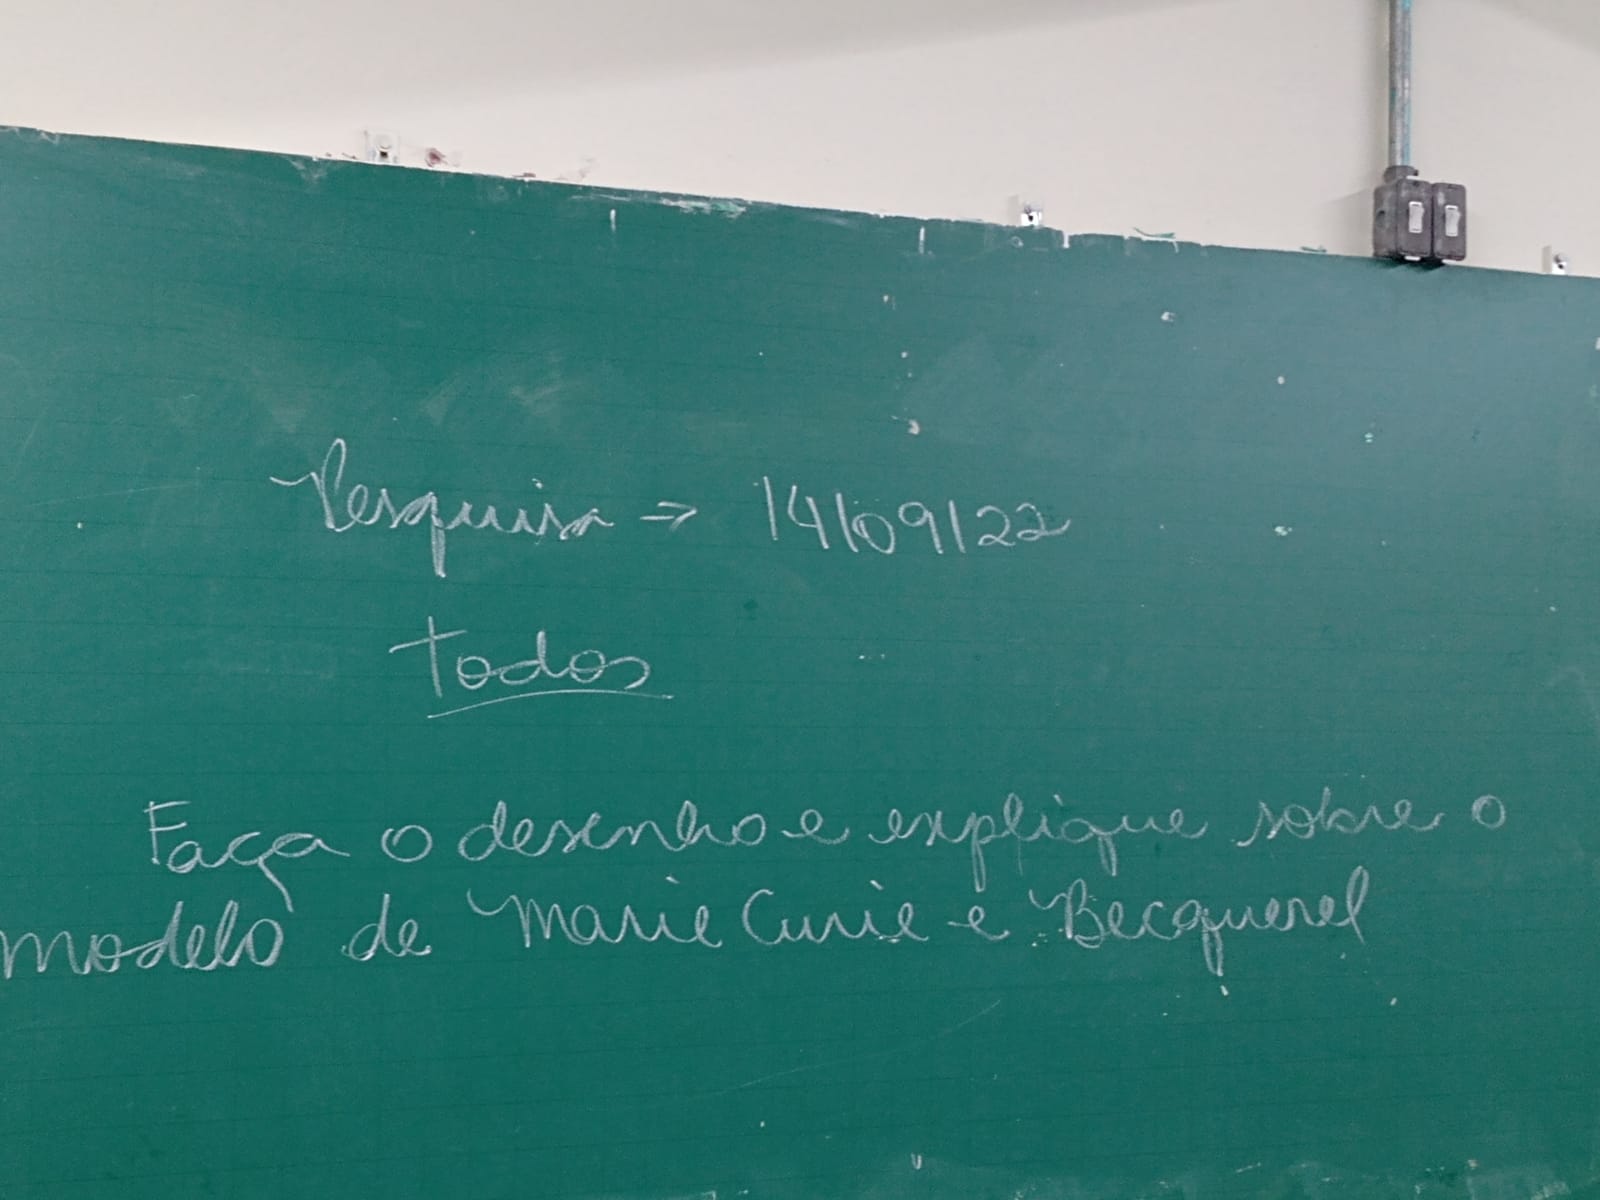 Pesquisa → 14/09/22
Todos
Faça o desenho e explique sobre o
modelo de Marie Curie e Becquerel